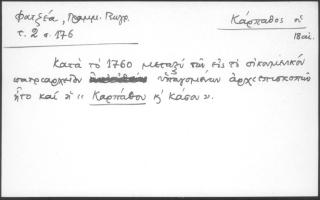 Φατζέα, Γραμμ. Γεωγρ.
τ. 2 σ. 176
Κάρπαθος ἡ
18 αἰ.
Κατὰ τὸ 1760 μεταξὺ τῶν εἰς τὸ οἰκουμενικὸν
πατριαρχεῖον ὑπαγομένων ἀρχιεπισκοπῶν
ἦτο καὶ ἡ "Καρπάθου κ' Κάσου".